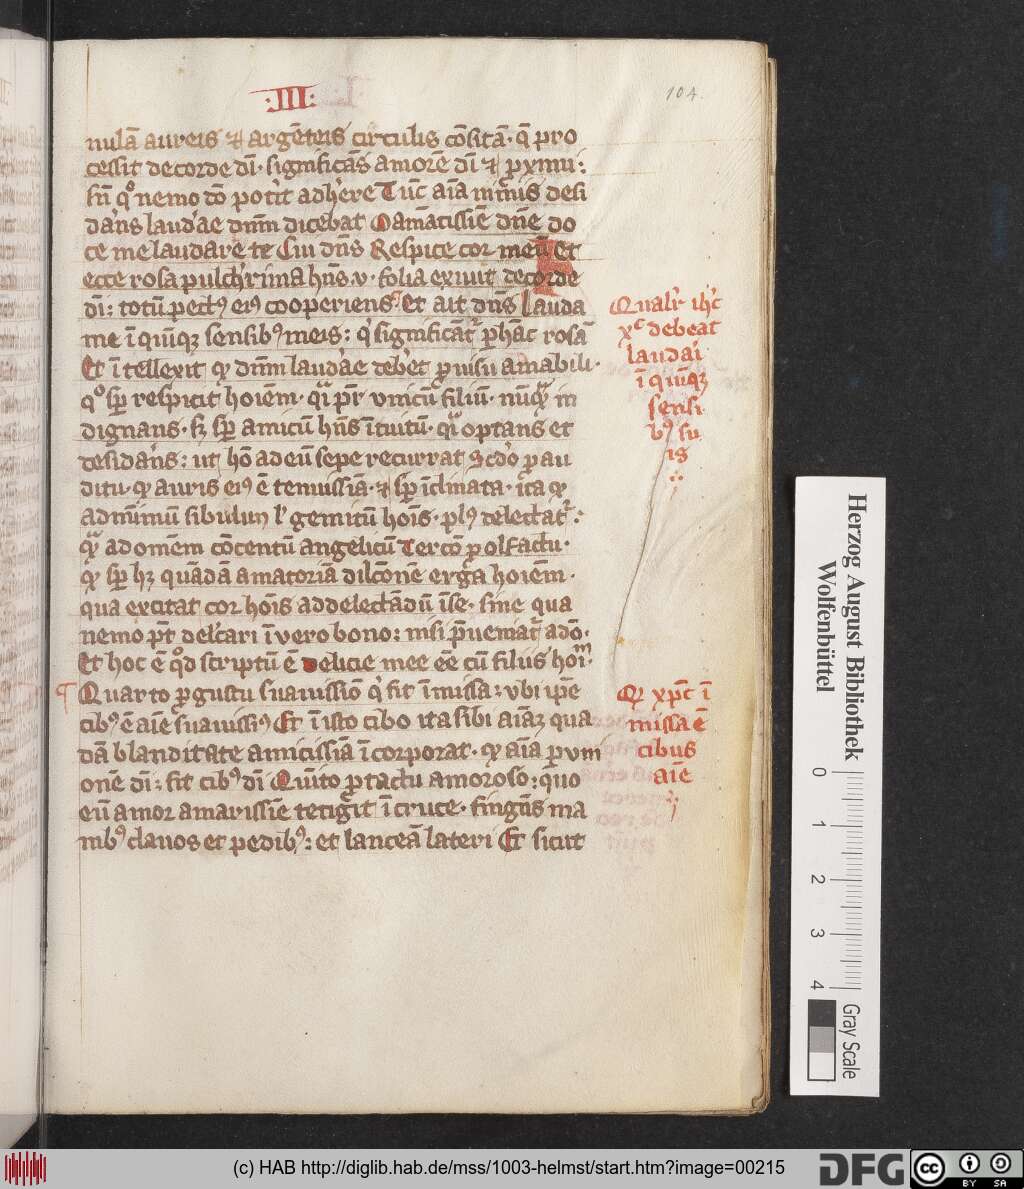 :III:
104.
nulā aureis et argēteis circulis cōsitā· q̄ pro
cessit de corde dn̄i· significās amorē dei et pximi:
sn̄ qͦ nemo dō potit adhere Tūc aīa mrīnis desi
dans laudae dnm dicebat O amātissīe dn̄e do
ce me laudare te Cui dn̄s Respice cor meū et
ecce rosa pulchrima hn̄s· v· folia exiuit de corde
dī: totū pectꝰ eiꝰ cooperiens Et ait dn̄s Lauda
me ī quīqꝫ sensibꝰ meis: q̇ significāt᷑ p hāc rosā
Et ītellexit qꝫ dnm laudae debet p uisū amabili·
qͦ sp̄ respicit hoīem· qͣ pr̄ vnicū filiū· nūqͣꝫ in
dignans· sꝫ sp̄ amicū hn̄s ītuitū· qͣ optans et
desidans: ut hō ad eū sepe recurrat Scd̄o p au
ditū· qꝫ auris eiꝰ ē tenuissīa· et sp̄ īclinata· ita qꝫ
ad mīnimū sibulum l' gemitū hoīs· plꝰ delectat᷑:
qͣꝫ ad omēm cōcentū angelicū Tercō p olfactū·
qꝫ sp̄ hꝫ quādā amatoriā dilc̄onē erga hoīem·
qua excitat cor hoīs ad delectādū ī se· sine qua
nemo pt̄ delc̄ari ī vero bono: nisi p̄ueniat᷑ a dō·
Et hoc ē qd̄ scriptū ē Delicie mee eē cū filiis hoīm·
¶ Quarto p gustū suauissīō q̇ fit ī missa: vbi ip̄e
cibꝰ ē aīe suauissīꝰ Et ī isto cibo ita sibi aīaꝫ qua
dā blanditate amicissīā īcorporat· qꝫ aīa p vni
onē dī: fit cibꝰ dī Quīto p tactū amorosō: quo
eū amor amarissīe tetigit ī cruce· fingēs ma
nibꝰ clauos et pedibꝰ: et lanceā lateri Et sicut
Qualr ih̄c
xc̄ debeat
laudai
ī quīqꝫ
sensi
bꝰ su
is
Qꝫ xpc̄ ī
missa ē
cibus
aīe
Herzog August Bibliothek
Wolfenbüttel
0 1 2 3 4
Gray Scale
(c) HAB http://diglib.hab.de/mss/1003-helmst/start.htm?image=00215
DFG
cc
BY SA